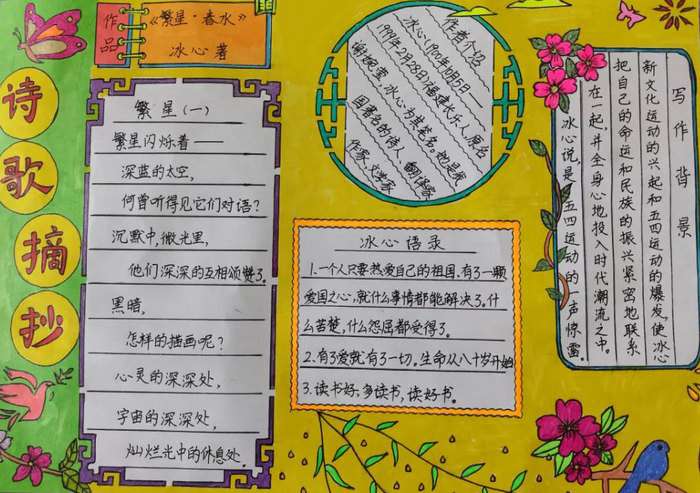 诗歌摘抄
作品
《繁星·春水》
冰心著
繁星（一）
繁星闪烁着——
深蓝的太空，
何曾听得见它们对语？
沉默中，微光里，
他们深深的互相颂赞了。
黑暗，
怎样的描画呢？
心灵的深深处，
宇宙的深深处，
灿烂光中的休息处。
作者介绍
冰心(1900年10月5日——
1999年2月28日)福建长乐人，原名
谢婉莹，冰心为其笔名。她是我
国著名的诗人，翻译家，
作家，文学家
冰心语录
1.一个人只要热爱自己的祖国，有了一颗
爱国之心，就什么事情都能解决了。什
么苦楚，什么怨屈都受得了。
2.有了爱就有了一切。生命从八十岁开始
3.读书好，多读书，读好书。
写作背景
冰心说，是“五四运动的一声惊雷”
把自己的命运和民族的振兴紧密地联系
在一起，并全身心地投入时代潮流之中。
新文化运动的兴起和五四运动的爆发，使冰心